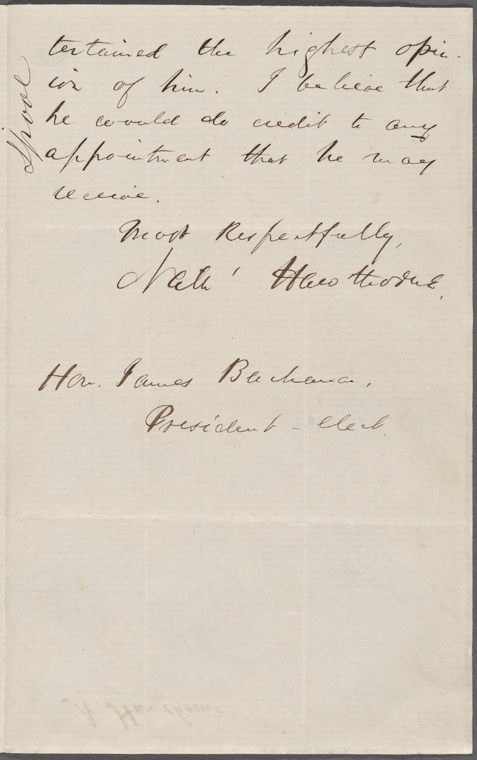 tertained the highest opin-
ion of him. I believe that
he would do credit to any
appointment that he may
receive.
Most Respectfully,
Nath' Hawthorne.
Hon. James Buchanan,
President-elect.